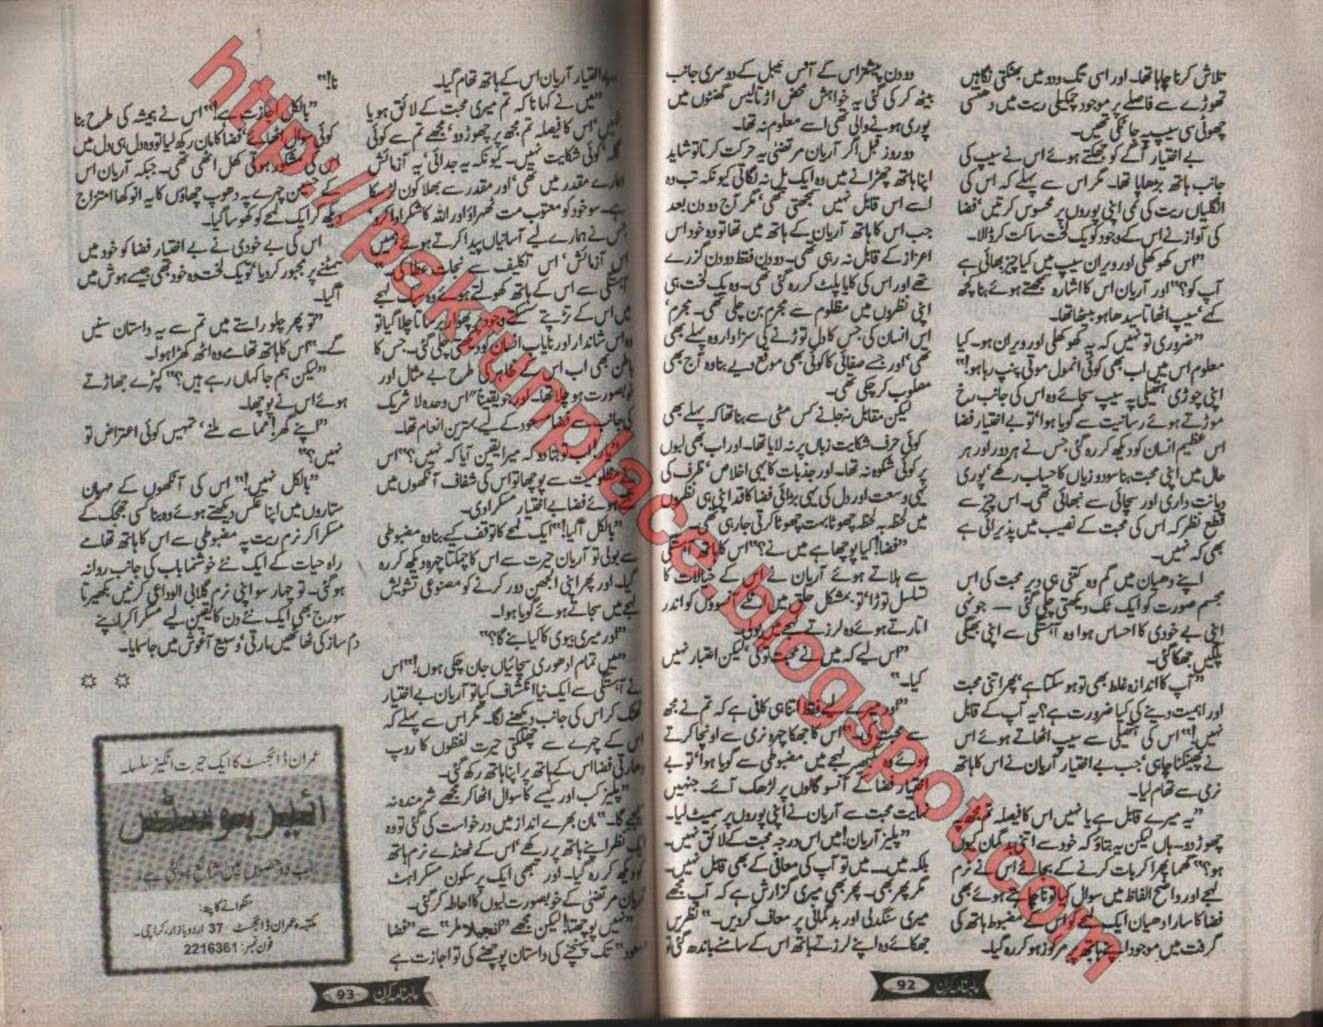 تلاش کرنا چاہا تھا۔ اور اسی تگ و دو میں بھٹکتی نگاہیں
تھوڑے سے فاصلے پر موجود چمکیلی ریت میں دھنسی
چھوٹی سی سیپ پہ جا ٹکی تھیں۔
بے اختیار آگے کو جھکتے ہوئے اس نے سیپ کی
جانب ہاتھ بڑھایا تھا۔ مگر اس سے پہلے کہ اس کی
انگلیاں ریت کی نمی اپنی پوروں پر محسوس کرتیں‘ فضا
کی آواز نے اس کے وجود کو یک لخت ساکت کر ڈالا۔
"اس کھوکھلی اور ویران سیپ میں کیا چیز بھائی ہے
آپ کو؟" اور آریان اس کا اشارہ سمجھتے ہوئے بنا کچھ
کہے‘ سیپ اٹھاتا سیدھا ہو بیٹھا تھا۔
"ضروری تو نہیں کہ یہ کھوکھلی اور ویران ہو۔ کیا
معلوم اس میں اب بھی کوئی انمول موتی پنپ رہا ہو!"
اپنی چوڑی ہتھیلی پہ سیپ سجائے وہ اس کی جانب رخ
موڑتے ہوئے رسانیت سے گویا ہوا‘ تو بے اختیار فضا
اس عظیم انسان کو دیکھ کر رہ گئی جس نے ہر دور اور ہر
حال میں اپنی محبت بنا سود و زیاں کا حساب رکھے‘ پوری
دیانت داری اور سچائی سے نبھائی تھی۔ اس چیز سے
قطع نظر کہ اس کی محبت کے نصیب میں پذیرائی ہے
بھی کہ نہیں۔
اپنے دھیان میں گم وہ کتنی ہی دیر محبت کی اس
مجسم صورت کو ایک ٹک دیکھتی چلی گئی — جونہی
اپنی بے خودی کا احساس ہوا وہ آہستگی سے اپنی بھیگی
پلکیں جھکا گئی۔
"آپ کا اندازہ غلط بھی تو ہو سکتا ہے‘ پھر اتنی محبت
اور اہمیت دینے کی کیا ضرورت ہے؟ یہ آپ کے قابل
نہیں!" اس کی ہتھیلی سے سیپ اٹھاتے ہوئے اس
نے پھینکنا چاہی‘ جب بے اختیار آریان نے اس کا ہاتھ
نرمی سے تھام لیا۔
"یہ میرے قابل ہے یا نہیں اس کا فیصلہ تم مجھ پہ
چھوڑ دو۔ ہاں لیکن یہ بتاؤ کہ خود سے اتنی بدگمان کیوں
ہو؟" گھما پھرا کر بات کرنے کے بجائے اس نے نرم
لہجے اور واضح الفاظ میں سوال کیا تو نا چاہتے ہوئے بھی
فضا کا سارا دھیان ایک لمحے کو اس کے مضبوط ہاتھ کی
گرفت میں موجود اپنے ہاتھ پہ مرکوز ہو کر رہ گیا۔
دو دن پیشتر اس کے آفس ٹیبل کے دوسری جانب
بیٹھ کر کی گئی یہ خواہش محض اڑتالیس گھنٹوں میں
پوری ہونے والی تھی اسے معلوم نہ تھا۔
دو روز قبل اگر آریان مرتضیٰ یہ حرکت کرتا تو شاید
اپنا ہاتھ چھڑانے میں وہ ایک پل نہ لگاتی کیونکہ تب وہ
اسے اس قابل نہیں سمجھتی تھی‘ مگر آج دو دن بعد
جب اس کا ہاتھ آریان کے ہاتھ میں تھا تو وہ خود اس
اعزاز کے قابل نہ رہی تھی۔ دو دن فقط دو دن گزرے
تھے اور اس کی کایا پلٹ کر رہ گئی تھی۔ وہ یک لخت ہی
اپنی نظروں میں مظلوم سے مجرم بن چلی تھی۔ مجرم‘
اس انسان کی‘ جس کا دل توڑنے کی سزا وار وہ پہلے بھی
تھی‘ اور جسے صفائی کا کوئی بھی موقع دیے بنا وہ آج بھی
مصلوب کر چکی تھی۔
لیکن مقابل نہ جانے کس مٹی سے بنا تھا کہ پہلے بھی
کوئی حرف شکایت زباں پر نہ لایا تھا۔ اور اب بھی لبوں
پر کوئی شکوہ نہ تھا۔ اور جذبات کا یہی اخلاص‘ ظرف کی
یہی وسعت اور دل کی یہی بڑائی فضا کا قد اپنی ہی نظروں
میں لحظہ بہ لحظہ چھوٹا بہت چھوٹا کرتی جا رہی تھی۔
"فضا! کیا پوچھا ہے میں نے؟" اس کا ہاتھ آہستگی
سے ہلاتے ہوئے آریان نے اس کے خیالات کا
تسلسل توڑا‘ تو بمشکل حلق میں آئے آنسوؤں کو اندر
اتارتے ہوئے وہ لرزتے لہجے میں بولی۔
"اس لیے کہ میں نے محبت تو کی‘ لیکن اعتبار نہیں
کیا۔"
"اور میرے لیے فقط اتنا ہی کافی ہے کہ تم نے مجھ
سے محبت کی۔" اس کا جھکا چہرہ نرمی سے اونچا کرتے
ہوئے وہ گمبھیر لہجے میں مضبوطی سے گویا ہوا‘ تو بے
اختیار فضا کے آنسو گالوں پر لڑھک آئے۔ جنہیں
نہایت محبت سے آریان نے اپنی پوروں پر سمیٹ لیا۔
"پلیز آریان! میں اس درجہ محبت کے لائق نہیں۔
بلکہ میں... میں تو آپ کی معافی کے بھی قابل نہیں۔
مگر پھر بھی۔ پھر بھی میری گزارش ہے کہ آپ مجھے
میری سنگدلی اور بدگمانی پر معاف کر دیں۔" نظریں
جھکائے وہ اپنے لرزتے ہاتھ اس کے سامنے باندھ گئی تو
ماہنامہ کرن 92
بے اختیار آریان اس کے ہاتھ تھام گیا۔
"میں نے کہا نا کہ تم میری محبت کے لائق ہو یا
نہیں‘ اس کا فیصلہ تم مجھ پر چھوڑ دو‘ مجھے تم سے کوئی
گلہ‘ کوئی شکایت نہیں۔ کیونکہ یہ جدائی‘ یہ آزمائش
ہمارے مقدر میں تھی‘ اور مقدر سے بھلا کون لڑ سکا
ہے۔ سو خود کو معتوب مت ٹھہراؤ اور اللہ کا شکر ادا کرو
جس نے ہمارے لیے آسانیاں پیدا کرتے ہوئے ہمیں
اس آزمائش‘ اس تکلیف سے نجات عطا کی۔"
آہستگی سے اس کے ہاتھ کھولتے ہوئے وہ لہجے
میں اس کے تڑپتے سسکتے وجود پر پھوار برساتا چلا گیا تو
وہ اس شاندار اور نایاب انسان کو دیکھتی چلی گئی۔ جس کا
باطن بھی اب اس کے ظاہر کی طرح بے مثال اور
خوبصورت ہو چلا تھا۔ اور جو یقیناً اس وحدہ لا شریک
کی جانب سے فضا مسعود کے لیے بہترین انعام تھا۔
اب تو بتا دو کہ میرا یقین آیا کہ نہیں؟" اس
معصومیت سے پوچھا تو اس کی شفاف آنکھوں میں
ہوئے فضا بے اختیار مسکرا دی۔
"بالکل آ گیا!" ایک لمحے کا توقف کیے بنا وہ مضبوطی
سے بولی تو آریان حیرت سے اس کا چمکتا چہرہ دیکھ کر رہ
گیا۔ اور پھر اپنی الجھن دور کرنے کو مصنوعی تشویش
لہجے میں سجاتے ہوئے گویا ہوا۔
"اور میری بیوی کا کیا بنے گا؟"
"میں تمام ادھوری سچائیاں جان چکی ہوں!" اس
نے آہستگی سے ایک نیا انکشاف کیا تو آریان بے اختیار
ٹھٹک کر اس کی جانب دیکھنے لگا۔ مگر اس سے پہلے کہ
اس کے چہرے سے چھلکتی حیرت لفظوں کا روپ
دھارتی فضا اس کے ہاتھ پر اپنا ہاتھ رکھ گئی۔
"پلیز کب اور کیسے کا سوال اٹھا کر مجھے شرمندہ نہ
کیجیے گا۔" مان بھرے انداز میں درخواست کی گئی تو وہ
ایک نظر اپنے ہاتھ پر رکھے‘ اس کے ٹھنڈے نرم ہاتھ
کو دیکھ کر رہ گیا۔ اور تبھی ایک پر سکون مسکراہٹ
آریان مرتضیٰ کے خوبصورت لبوں کا احاطہ کر گئی۔
"نہیں پوچھتا! لیکن مجھے "انجیلا ملر" سے "فضا
مسعود" تک پہنچنے کی داستان پوچھنے کی تو اجازت ہے
نا!"
"بالکل اجازت ہے!" اس نے ہمیشہ کی طرح بنا
کوئی سوال اٹھائے‘ فضا کا مان رکھ لیا تو وہ دل ہی دل میں
اس کی مشکور ہوتی کھل اٹھی تھی۔ جبکہ آریان اس
کے حسین چہرے پہ دھوپ چھاؤں کا یہ انوکھا امتزاج
دیکھ کر ایک لمحے کو کھو سا گیا۔
اس کی بے خودی نے بے اختیار فضا کو خود میں
سمٹنے پر مجبور کر دیا‘ تو یک لخت وہ خود بھی جیسے ہوش میں
آ گیا۔
"تو پھر چلو راستے میں تم سے یہ داستان سنیں
گے۔" اس کا ہاتھ تھامے وہ اٹھ کھڑا ہوا۔
"لیکن ہم جا کہاں رہے ہیں؟" کپڑے جھاڑتے
ہوئے اس نے پوچھا۔
"اپنے گھر! مما سے ملنے‘ تمہیں کوئی اعتراض تو
نہیں؟"
"بالکل نہیں!" اس کی آنکھوں کے مہربان
ستاروں میں اپنا عکس دیکھتے ہوئے وہ بنا کسی جھجک کے
مسکرا کر نرم ریت پہ مضبوطی سے اس کا ہاتھ تھامے
راہ حیات کے ایک نئے خوشنما باب کی جانب روانہ
ہو گئی۔ تو چہار سو اپنی نرم گلابی الوداعی کرنیں بکھیرتا
سورج بھی ایک نئے دن کا یقین لیے مسکرا کر اپنے
دم ساز کی ٹھاٹھیں مارتی‘ وسیع آغوش میں جا سمایا۔
☼ ☼
عمران ڈائجسٹ کا ایک حیرت انگیز سلسلہ
ائیر ہوسٹس
دو حصوں میں شائع ہو گئی ہے۔
منگوانے کا پتہ:
مکتبہ عمران ڈائجسٹ 37 اردو بازار، کراچی۔
فون نمبر: 2216361
ماہنامہ کرن 93
http://pakfunplace.blogspot.com